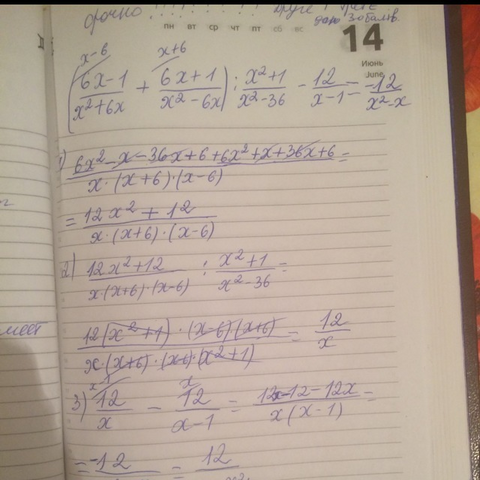 срочно!!!!!!!!
даю 3 баллов.
пн вт ср чт пт сб вс
14
Июнь
June
x-6 x+6
(6x-1/x²+6x + 6x+1/x²-6x) : x²+1/x²-36 - 12/x-1 = -12/x²-x
1) 6x²-x-36x+6+6x²+x+36x+6/x·(x+6)·(x-6) =
= 12x²+12/x·(x+6)·(x-6)
2) 12x²+12/x·(x+6)·(x-6) : x²+1/x²-36 =
12(x²+1)·(x-6)(x+6)/x(x+6)·(x-6)·(x²+1) = 12/x
3) 12/x - 12/x-1 = 12x-12-12x/x(x-1) =
= -12 = 12